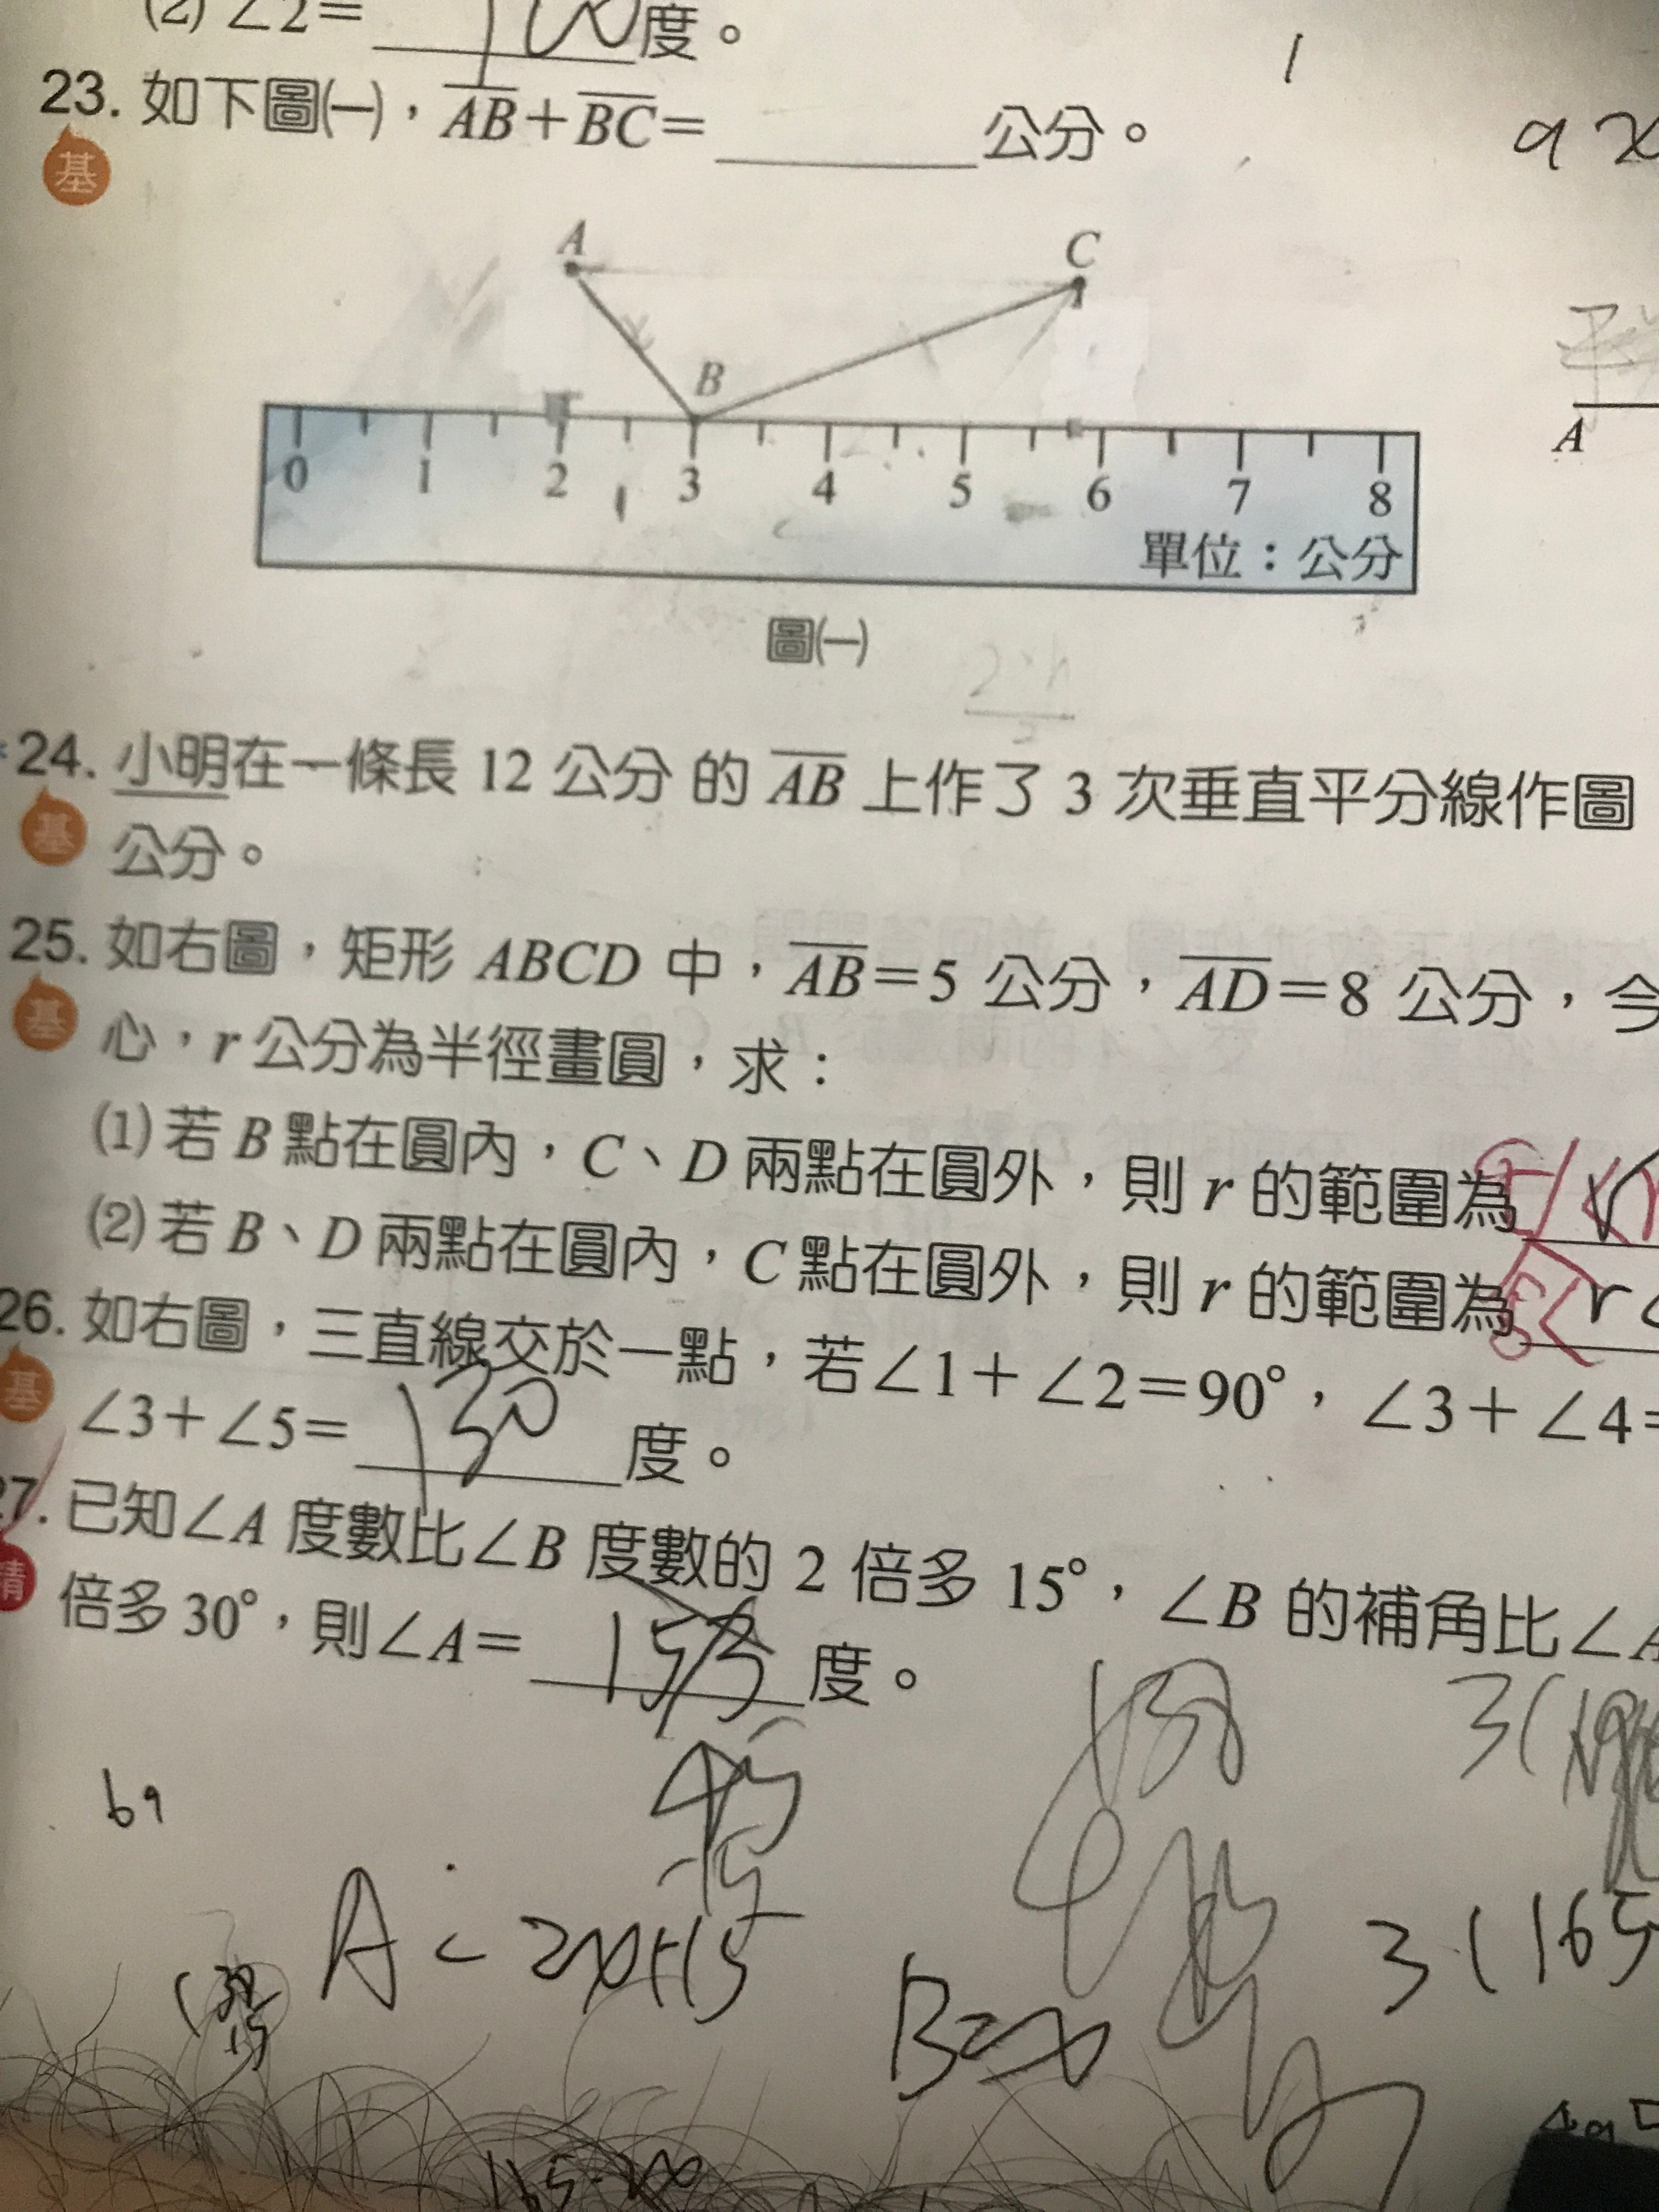 (2) ∠2= 度。
23. 如下圖(一),AB+BC= 公分。
基
A
C
B
0 1 2 3 4 5 6 7 8
單位:公分
圖(一)
A
24. 小明在一條長 12 公分 的 AB 上作了 3 次垂直平分線作圖
基 公分。
25. 如右圖,矩形 ABCD 中,AB=5 公分,AD=8 公分,今
基 心,r 公分為半徑畫圓,求:
(1) 若 B 點在圓內,C、D 兩點在圓外,則 r 的範圍為
(2) 若 B、D 兩點在圓內,C 點在圓外,則 r 的範圍為 8< r<
26. 如右圖,三直線交於一點,若∠1+∠2=90°,∠3+∠4=
基 ∠3+∠5= 130 度。
27. 已知∠A 度數比∠B 度數的 2 倍多 15°,∠B 的補角比∠A
精 倍多 30°,則∠A= 度。
A = 2x+15
B=x
3(165